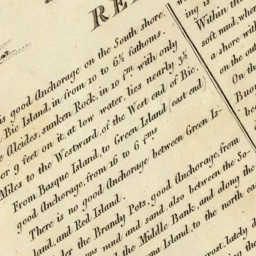 RE
is good Anchorage on the South shore,
Bic Island, in from 10 to 6½ fathoms.
Alcides, sunken Rock, in 10 fms. with only
or 9 feet on it, at low water, lies nearly 3¼
Miles to the Westward, of the West end of Bic.
From Basque Island, to Green Island (east end)
good Anchorage, from 16 to 6 fms
There is no good Anchorage between Green Is-
land, and Red Island.
Under the Brandy Pots, good Anchorage, from
fms mud and sand, also between the So-
the Middle Bank, and along the
Island, to the north ea
rost, lately d
ing is
Within th
soft mud, wh
a shore wid
on the ou
On th
Buo
be
O